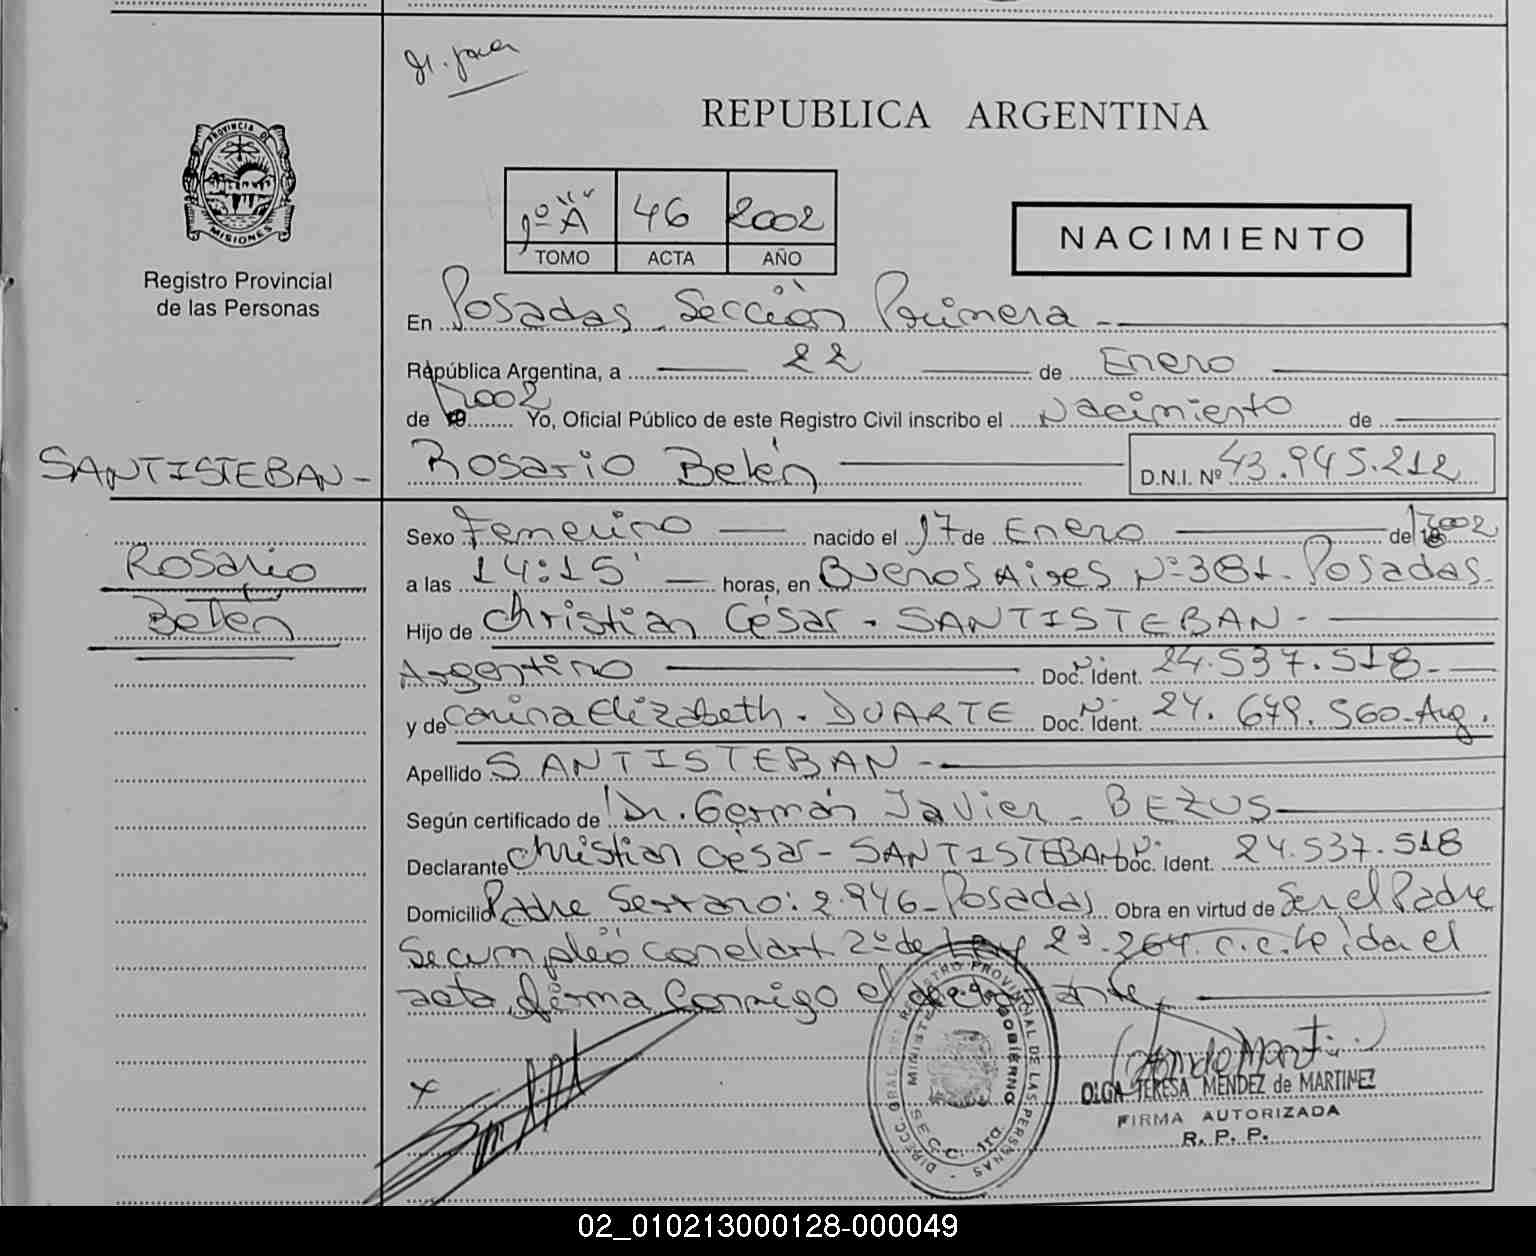 REPUBLICA ARGENTINA
PROVINCIA DE
MISIONES
Registro Provincial
de las Personas
1º "A" 46 2002
TOMO ACTA AÑO
NACIMIENTO
En Posadas - Sección Primera -
República Argentina, a 22 de Enero
de 2002 Yo, Oficial Público de este Registro Civil inscribo el Nacimiento de
SANTISTEBAN - Rosario Belén D.N.I. Nº 43.945.212
Rosario
Belén
Sexo Femenino nacido el 17 de Enero de 2002
a las 14:15' horas, en Buenos Aires Nº 381 - Posadas -
Hijo de Christian César - SANTISTEBAN -
Argentino Doc. Nº Ident. 24.537.518 -
y de Corina Elizabeth - DUARTE Doc. Nº Ident. 24.679.560 - Arg.
Apellido SANTISTEBAN -
Según certificado de Dr. Germán Javier - BEZUS
Declarante Christian César - SANTISTEBAN - Doc. Nº Ident. 24.537.518
Domicilio Padre Serrano: 2.946 - Posadas Obra en virtud de Ser el Padre
Se cumplió con el art 2º de Ley 23.264. C.C. Leída el
acta, firma conmigo el declarante,
x
DIRECC. GRAL DEL REGISTRO PROVINCIAL DE LAS PERSONAS
MINISTERIO DE GOBIERNO
SECC. 1ra.
OLGA TERESA MENDEZ de MARTINEZ
FIRMA AUTORIZADA
R. P. P.
02_010213000128-000049